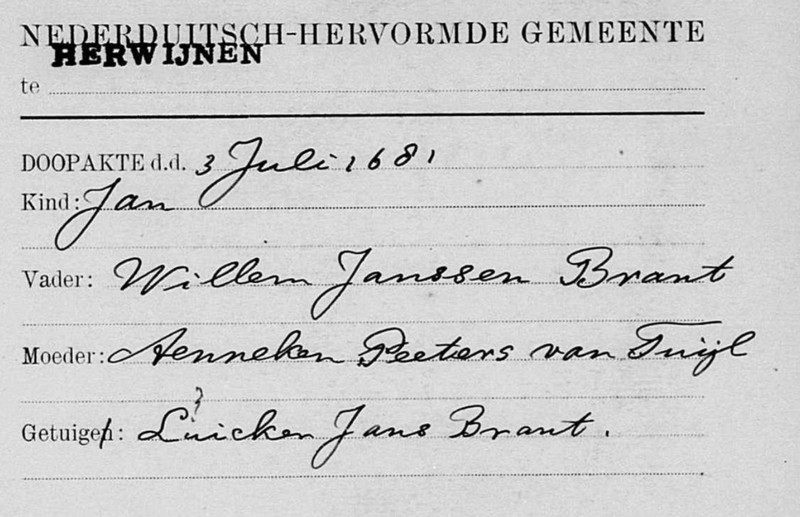 NEDERDUITSCH-HERVORMDE GEMEENTE
HERWIJNEN
te
DOOPAKTE d.d. 3 Juli 1681
Kind: Jan
Vader: Willem Janssen Brant
Moeder: Aenneken Peeters van Tuijl
?
Getuigen: Luicken Jans Brant.